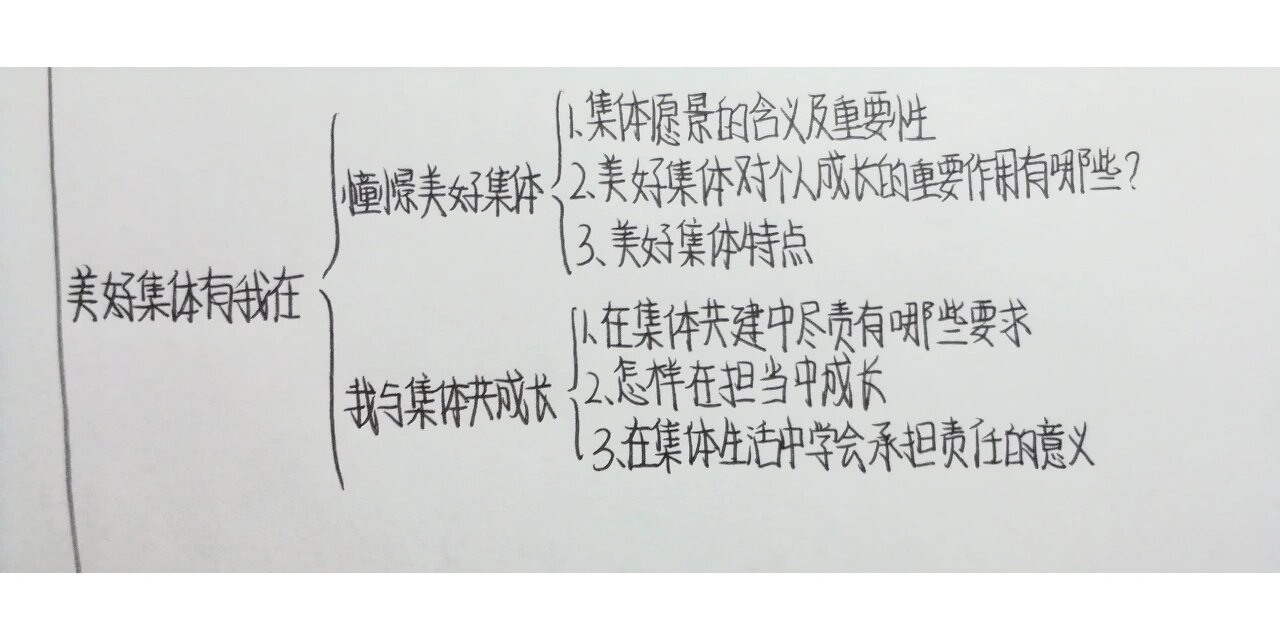 美好集体有我在
憧憬美好集体
1.集体愿景的含义及重要性
2、美好集体对个人成长的重要作用有哪些?
3、美好集体特点
我与集体共成长
1.在集体共建中尽责有哪些要求
2、怎样在担当中成长
3、在集体生活中学会承担责任的意义